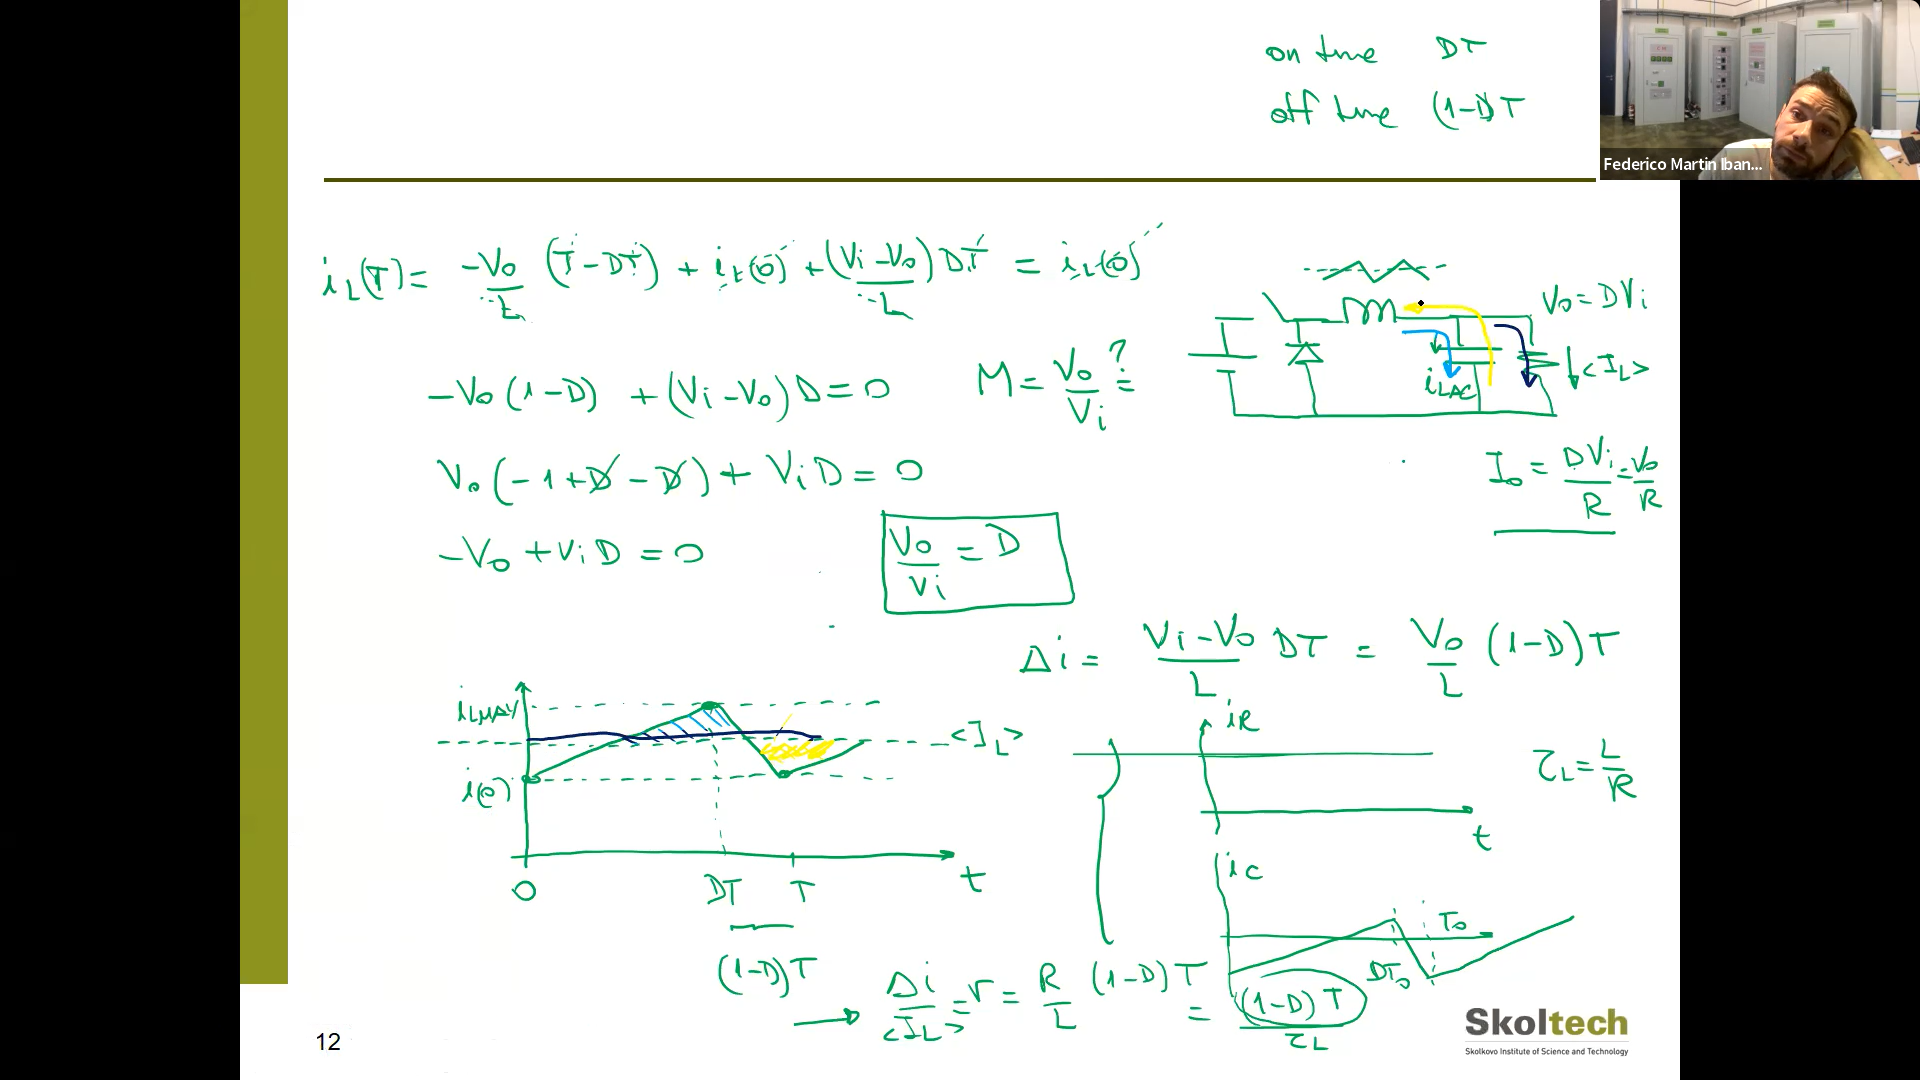 on time DT
off time (1-D)T
Federico Martin Iban...
iL(T) = -Vo/L (T-DT) + iL(0) + (Vi-Vo)/L DT = iL(0)
Vo = DVi
-Vo(1-D) + (Vi-Vo)D = 0
M = Vo/Vi = ?
iLAC
<IL>
Vo(-1+D-D) + ViD = 0
Io = DVi/R = Vo/R
-Vo + ViD = 0
Vo/Vi = D
Δi = Vi-Vo/L DT = Vo/L (1-D)T
iLMAX
<IL>
i(0)
0
DT
T
t
(1-D)T
iR
t
τL = L/R
iC
To
DTo
Δi/<IL> = r = R/L (1-D)T = (1-D)T/τL
12
Skoltech
Skolkovo Institute of Science and Technology